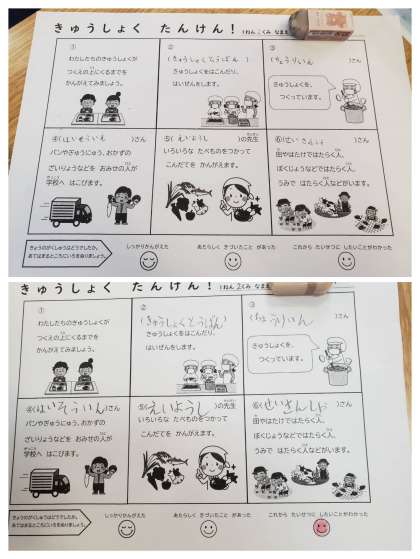 きゅうしょく たんけん！ 1ねん 2くみ なまえ
①
わたしたちのきゅうしょくが
つくえの上にくるまでを
かんがえてみましょう。
②
(きゅうしょくとうばん)
きゅうしょくをはこんだり、
はいぜんをします。
③
(ちょうりいん )さん
きゅうしょくを、
つくっています。
④(はいそういん )さん
パンやぎゅうにゅう、おかずの
ざいりょうなどを おみせの人が
学校へ はこびます。
⑤( えいようし )の先生
いろいろな たべものをつかって
こんだてを かんがえます。
⑥(せいさんしゃ )さん
田やはたけではたらく人、
ぼくじょうなどではたらく人、
うみで はたらく人などがいます。
きょうのがくしゅうはどうでしたか。
あてはまるところにいろをぬりましょう。
しっかりかんがえた
あたらしく きづいたこと があった
これから たいせつに したいことがわかった
きゅうしょく たんけん！ 1ねん 2くみ なまえ
①
わたしたちのきゅうしょくが
つくえの上にくるまでを
かんがえてみましょう。
②
(きゅうしょくとうばん)
きゅうしょくをはこんだり、
はいぜんをします。
③
(ちょうりいん )さん
きゅうしょくを、
つくっています。
④(はいそういん)さん
パンやぎゅうにゅう、おかずの
ざいりょうなどを おみせの人が
学校へ はこびます。
⑤(えいようし )の先生
いろいろな たべものをつかって
こんだてを かんがえます。
⑥(せいさんしゃ )さん
田やはたけではたらく人、
ぼくじょうなどではたらく人、
うみで はたらく人などがいます。
きょうのがくしゅうはどうでしたか。
あてはまるところにいろをぬりましょう。
しっかりかんがえた
あたらしく きづいたこと があった
これから たいせつに したいことがわかった